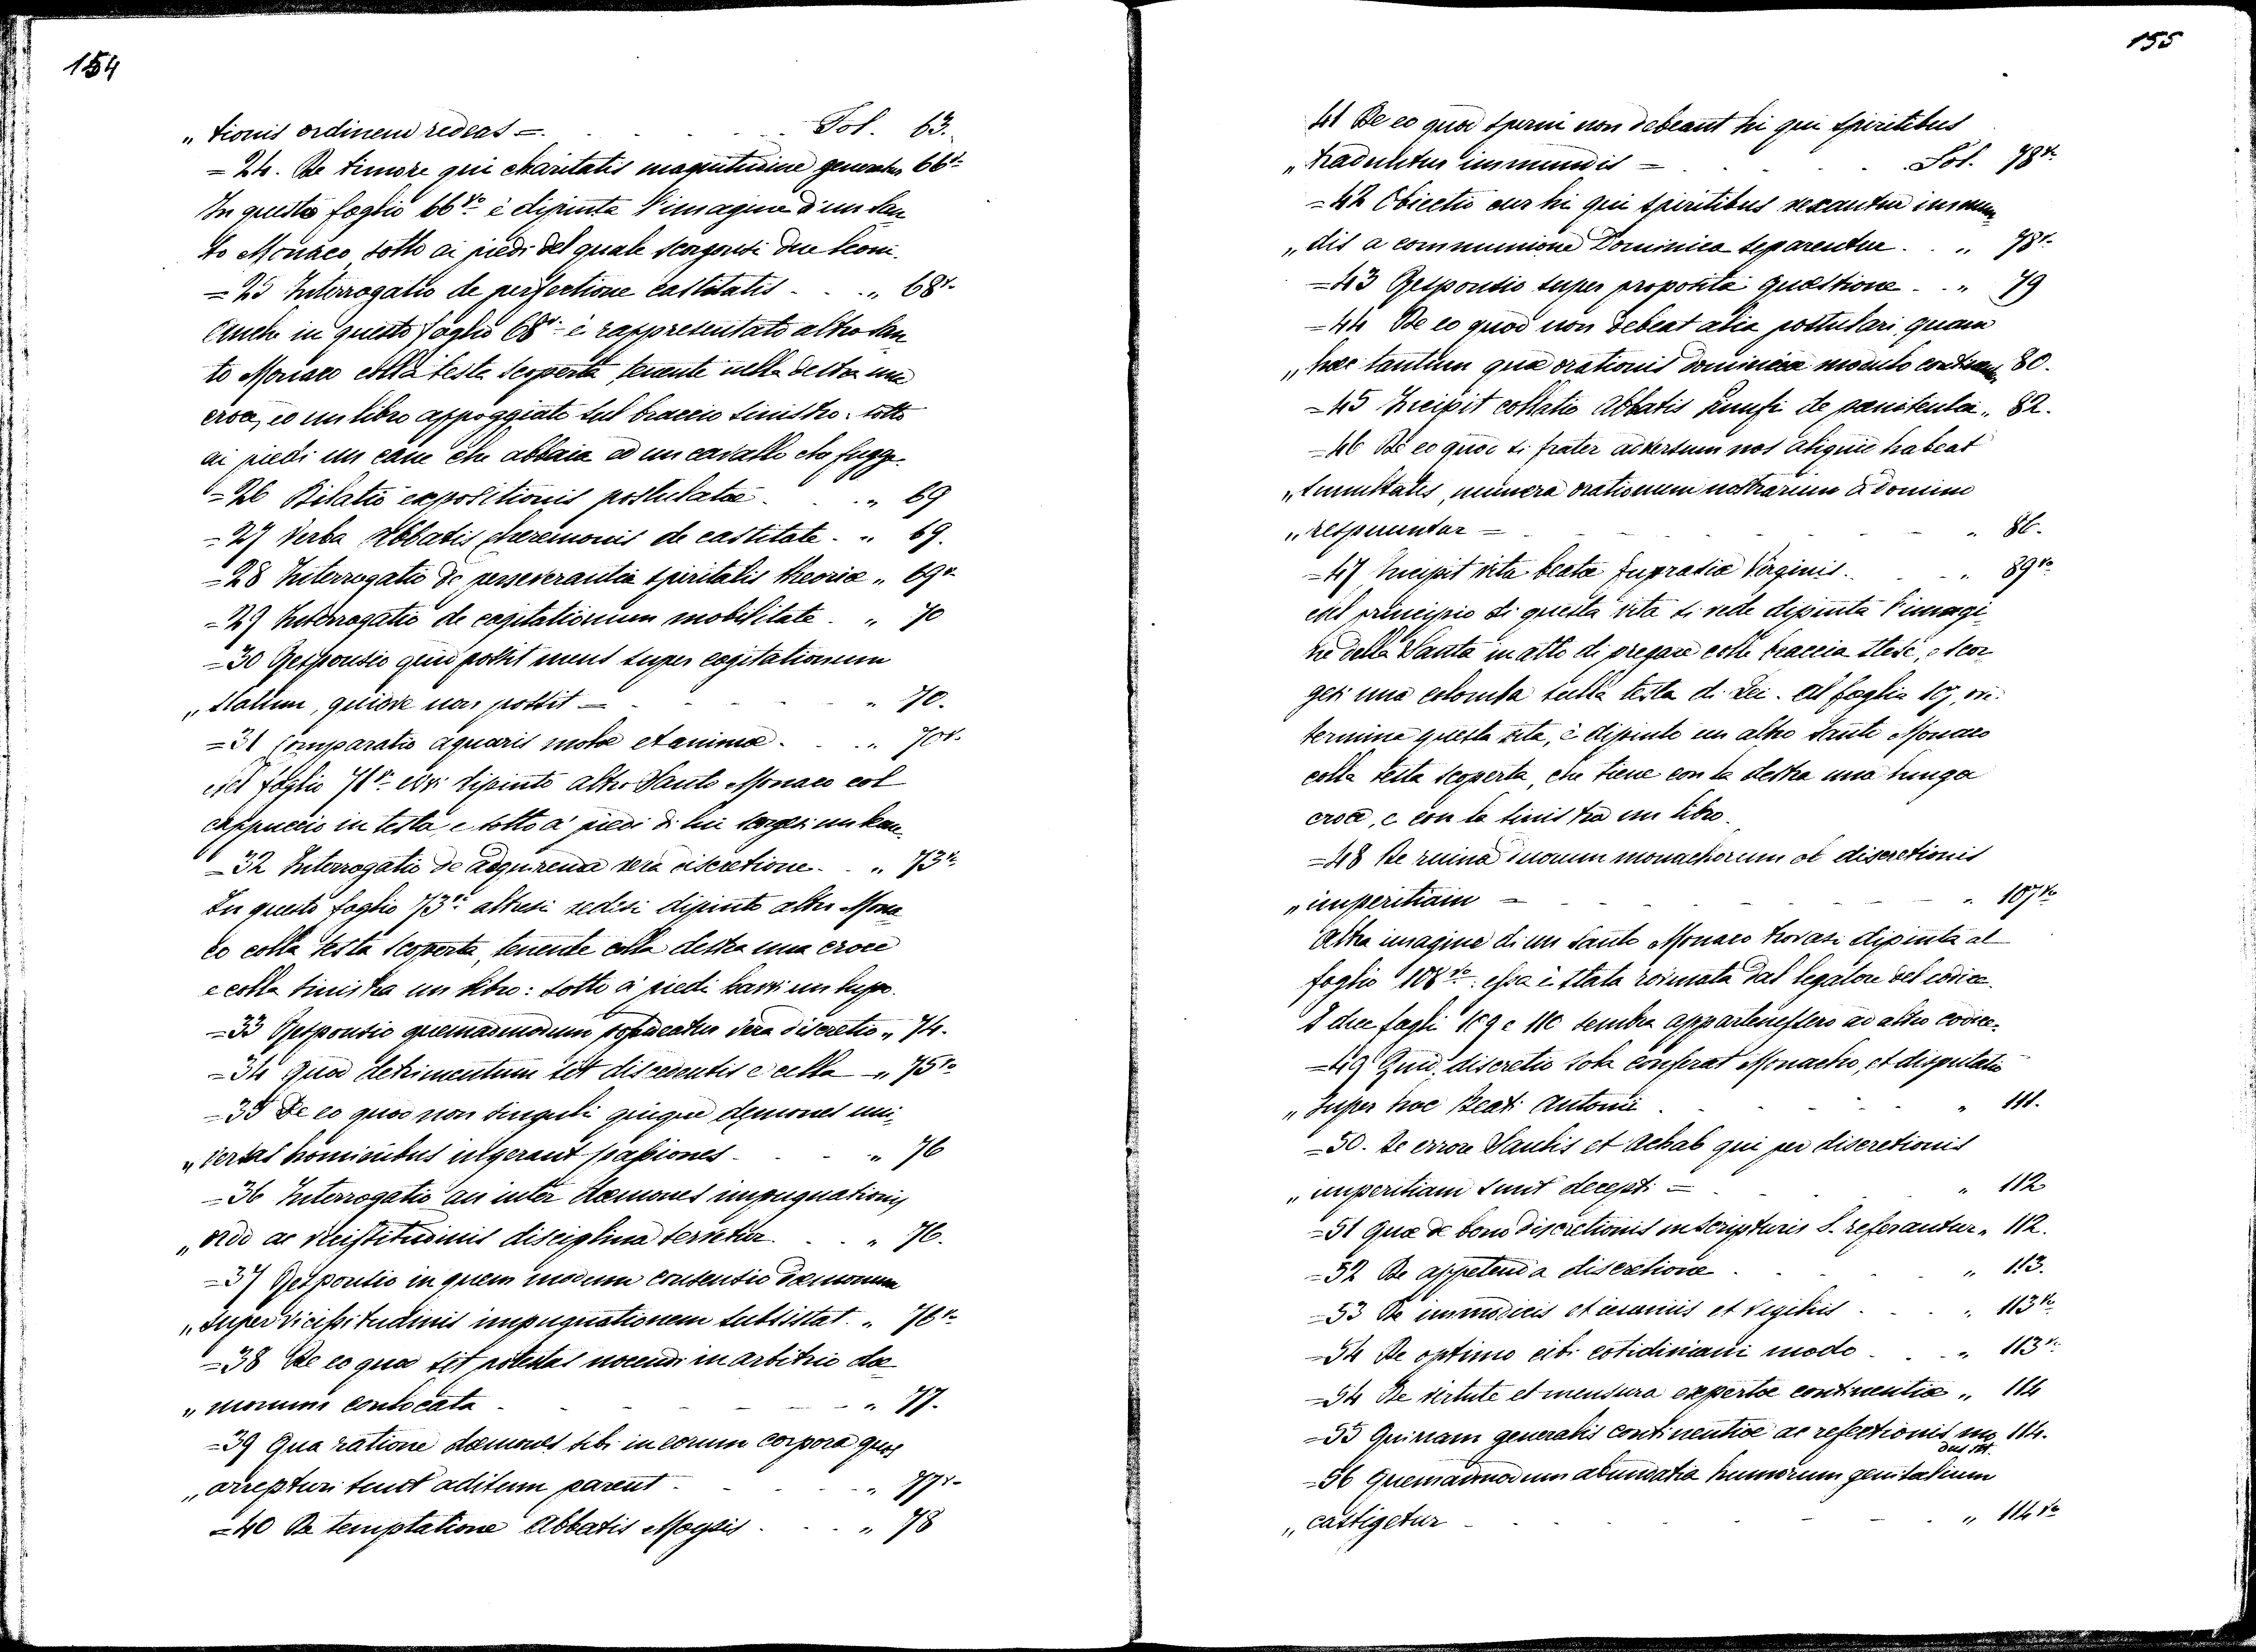 154
„ tionis ordinem redeas = . . . . Fol. 63.
= 24. De timore qui charitatis magnitudine generatur 66 v.
In questo foglio 66 vo. è dipinta l'imagine d'un San
to Monaco, sotto ai piedi del quale scorgonsi due leoni.
= 25 Interrogatio de perfectione castitatis . . „ 68 v.
Anche in questo foglio 68 v. è rappresentato altro San
to Monaco colla testa scoperta, tenente nella destra una
croce, ed un libro appoggiato sul braccio sinistro: sotto
ai piedi un cane che abbaia ad un cavallo che fugge.
= 26 Dilatio expositionis postulatæ . . „ 69
= 27 Verba Abbatis Cheremonis de castitate . „ 69.
= 28 Interrogatio de perseverantia spiritalis theoriæ „ 69 v.
= 29 Interrogatio de cogitationum mobilitate . „ 70
= 30 Responsio quid possit mens super cogitationum
„ statum, quidve non possit = . . . „ 70.
= 31 Comparatio aquaris molæ et animæ . . „ 70 v.
Nel foglio 71 v. evvi dipinto altro Santo Monaco col
cappuccio in testa, e sotto a' piedi di lui scorgesi un
= 32 Interrogatio de adquirenda vera discretione . „ 73 v.
In questo foglio 73 v. altresì vedesi dipinto altro Mona
co colla testa scoperta, tenente colla destra una croce
e colla sinistra un libro: sotto a' piedi havvi un lupo.
= 33 Responsio quemadmodum vera discretio „ 74.
= 34 Quod detrimentum sit discedentis e cella „ 75 vo
= 35 De eo quod non singuli quique demones uni
„ versas hominibus ingerant passiones . . „ 76
= 36 Interrogatio an inter dæmones impugnationis
„ ordo ac vicissitudinis disciplina servetur . . „ 76.
= 37 Responsio in quem modum consensio dæmonum
„ super vicissitudinis impugnationem subsistat . „ 76 v.
= 38 De eo quod sit potestas nocendi in arbitrio dæ
„ monum conlocata . . . . „ 77.
= 39 Qua ratione dæmones sibi in eorum corpora quos
„ arrepturi sunt aditum parent . . . „ 77 v.
= 40 De temptatione Abbatis Moysis . . „ 78
155
41 De eo quod sperni non debeant hi qui spiritibus
„ traduntur immundis = . . . Fol. 78 v.
= 42 Obiectio cur hi qui spiritibus vexantur immun
„ dis a communione Dominica separentur . . „ 78 v.
= 43 Responsio super proposita quæstione . . „ 79
= 44 De eo quod non debeat alia postulari, quam
„ hæc tantum quæ orationis dominicæ modulo 80.
= 45 Incipit collatio Abbatis Pinufi de pænitentia „ 82.
= 46 De eo quod si frater adversum nos aliquid habeat
„ simultatis, munera orationum nostrarum a domino
„ respuuntur = . . . . „ 86.
= 47 Incipit vita beatæ Eupraxiæ Virginis . . „ 89 vo
Nel principio di questa vita si vede dipinta l'imagi
ne della Santa in atto di pregare colle braccia stese, e scor
gesi una colomba sulla testa di Lei. Al foglio 107, ove
termina questa vita, è dipinto un altro Santo Monaco
colla testa scoperta, che tiene con la destra una lunga
croce, e con la sinistra un libro.
= 48 De ruina duorum monachorum ob discretionis
„ imperitiam = . . . . „ 107 vo
Altra imagine di un Santo Monaco trovasi dipinta al
foglio 108 vo: essa è stata rovinata dal legatore del codice.
I due fogli 109 e 110 sembra appartenessero ad altro codice.
= 49 Quid discretio sola conferat Monacho, et disputatio
„ super hoc Beati Antonii . . . . „ 111.
= 50. De errore Saulis et Achab qui per discretionis
„ imperitiam sunt decepti = . . . „ 112
= 51 Quæ de bono discretionis in scripturis S. referantur „ 112.
= 52 De appetenda discretione . . . . „ 113.
= 53 De immodicis et ieiuniis et vigiliis . . „ 113 vo
= 54 De optimo cibi cotidiniani modo . . „ 113 v.
= 54 De virtute et mensura expertæ continentiæ „ 114
= 55 Quinam generalis continentiæ ac refectionis mo 114.
dus sit.
= 56 Quemadmodum abundatia humorum genitalium
„ castigetur . . . . . „ 114 vo